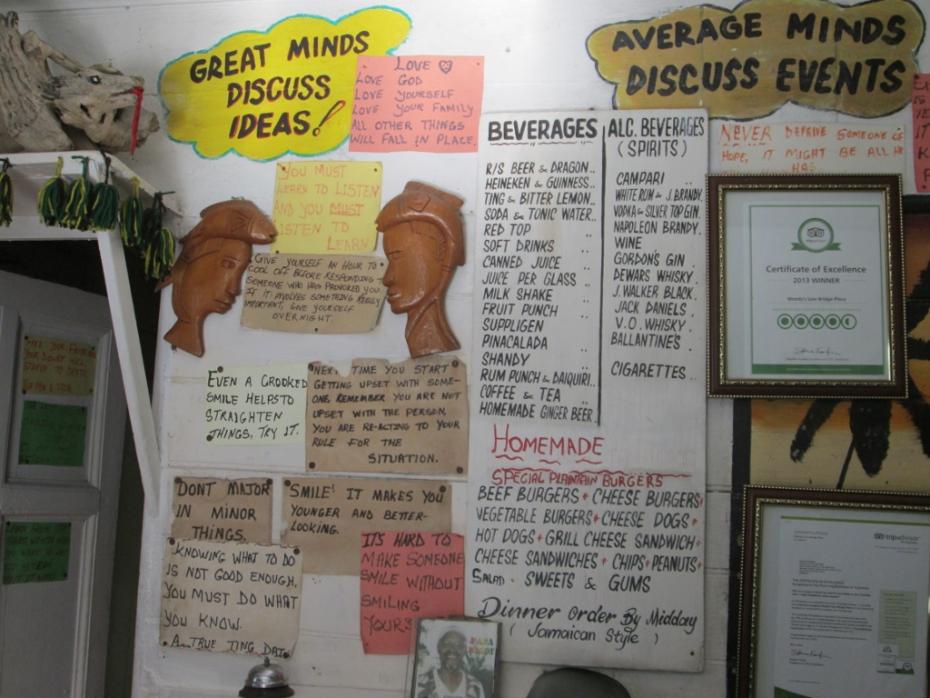 GREAT MINDS
DISCUSS
IDEAS!
AVERAGE MINDS
DISCUSS EVENTS
LOVE
LOVE GOD
LOVE YOURSELF
LOVE YOUR FAMILY
ALL OTHER THINGS
WILL FALL IN PLACE.
YOU MUST
LEARN TO LISTEN
AND YOU MUST
LISTEN TO
LEARN
GIVE YOURSELF AN HOUR TO
COOL OFF BEFORE RESPONDING
SOMEONE WHO HAS PROVOKED YOU
IF IT INVOLVES SOMETHING REALLY
IMPORTANT, GIVE YOURSELF
OVERNIGHT.
EVEN A CROOKED
SMILE HELPSTO
STRAIGHTEN
THINGS, TRY IT.
NEXT TIME YOU START
GETTING UPSET WITH SOME-
ONE REMEMBER YOU ARE NOT
UPSET WITH THE PERSON,
YOU ARE RE-ACTING TO YOUR
RULE FOR THE
SITUATION.
DONT MAJOR
IN MINOR
THINGS.
SMILE! IT MAKES YOU
YOUNGER AND BETTER-
LOOKING.
KNOWING WHAT TO DO
IS NOT GOOD ENOUGH,
YOU MUST DO WHAT
YOU KNOW.
A TRUE TING DAT
IT'S HARD TO
MAKE SOMEONE
SMILE WITHOUT
SMILING
BEVERAGES
R/S BEER & DRAGON..
HEINEKEN & GUINNESS..
TING & BITTER LEMON..
SODA & TONIC WATER..
RED TOP ..
SOFT DRINKS ..
CANNED JUICE ..
JUICE PER GLASS ..
MILK SHAKE ..
FRUIT PUNCH ..
SUPPLIGEN
PINACALADA ..
SHANDY ..
RUM PUNCH & DAIQUIRI..
COFFEE & TEA ..
HOMEMADE GINGER BEER
ALC. BEVERAGES
(SPIRITS)
CAMPARI ..
WHITE RUM & J. BRANDY.
VODKA & SILVER TOP GIN.
NAPOLEON BRANDY.
WINE
GORDON'S GIN
DEWARS WHISKY.
J. WALKER BLACK.
JACK DANIELS .
V.O. WHISKY.
BALLANTINES .
CIGARETTES ..
HOMEMADE
SPECIAL PLANTAIN BURGERS
BEEF BURGERS + CHEESE BURGERS+
VEGETABLE BURGERS + CHEESE DOGS +
HOT DOGS + GRILL CHEESE SANDWICH+
CHEESE SANDWICHES + CHIPS+ PEANUTS+
SALAD . SWEETS & GUMS
Dinner order By Midday
( Jamaican Style )
NEVER DEPRIVE SOMEONE OF
HOPE, IT MIGHT BE ALL HE
HAS
Certificate of Excellence
2013 WINNER
Woody's Low Bridge Place
tripadvisor